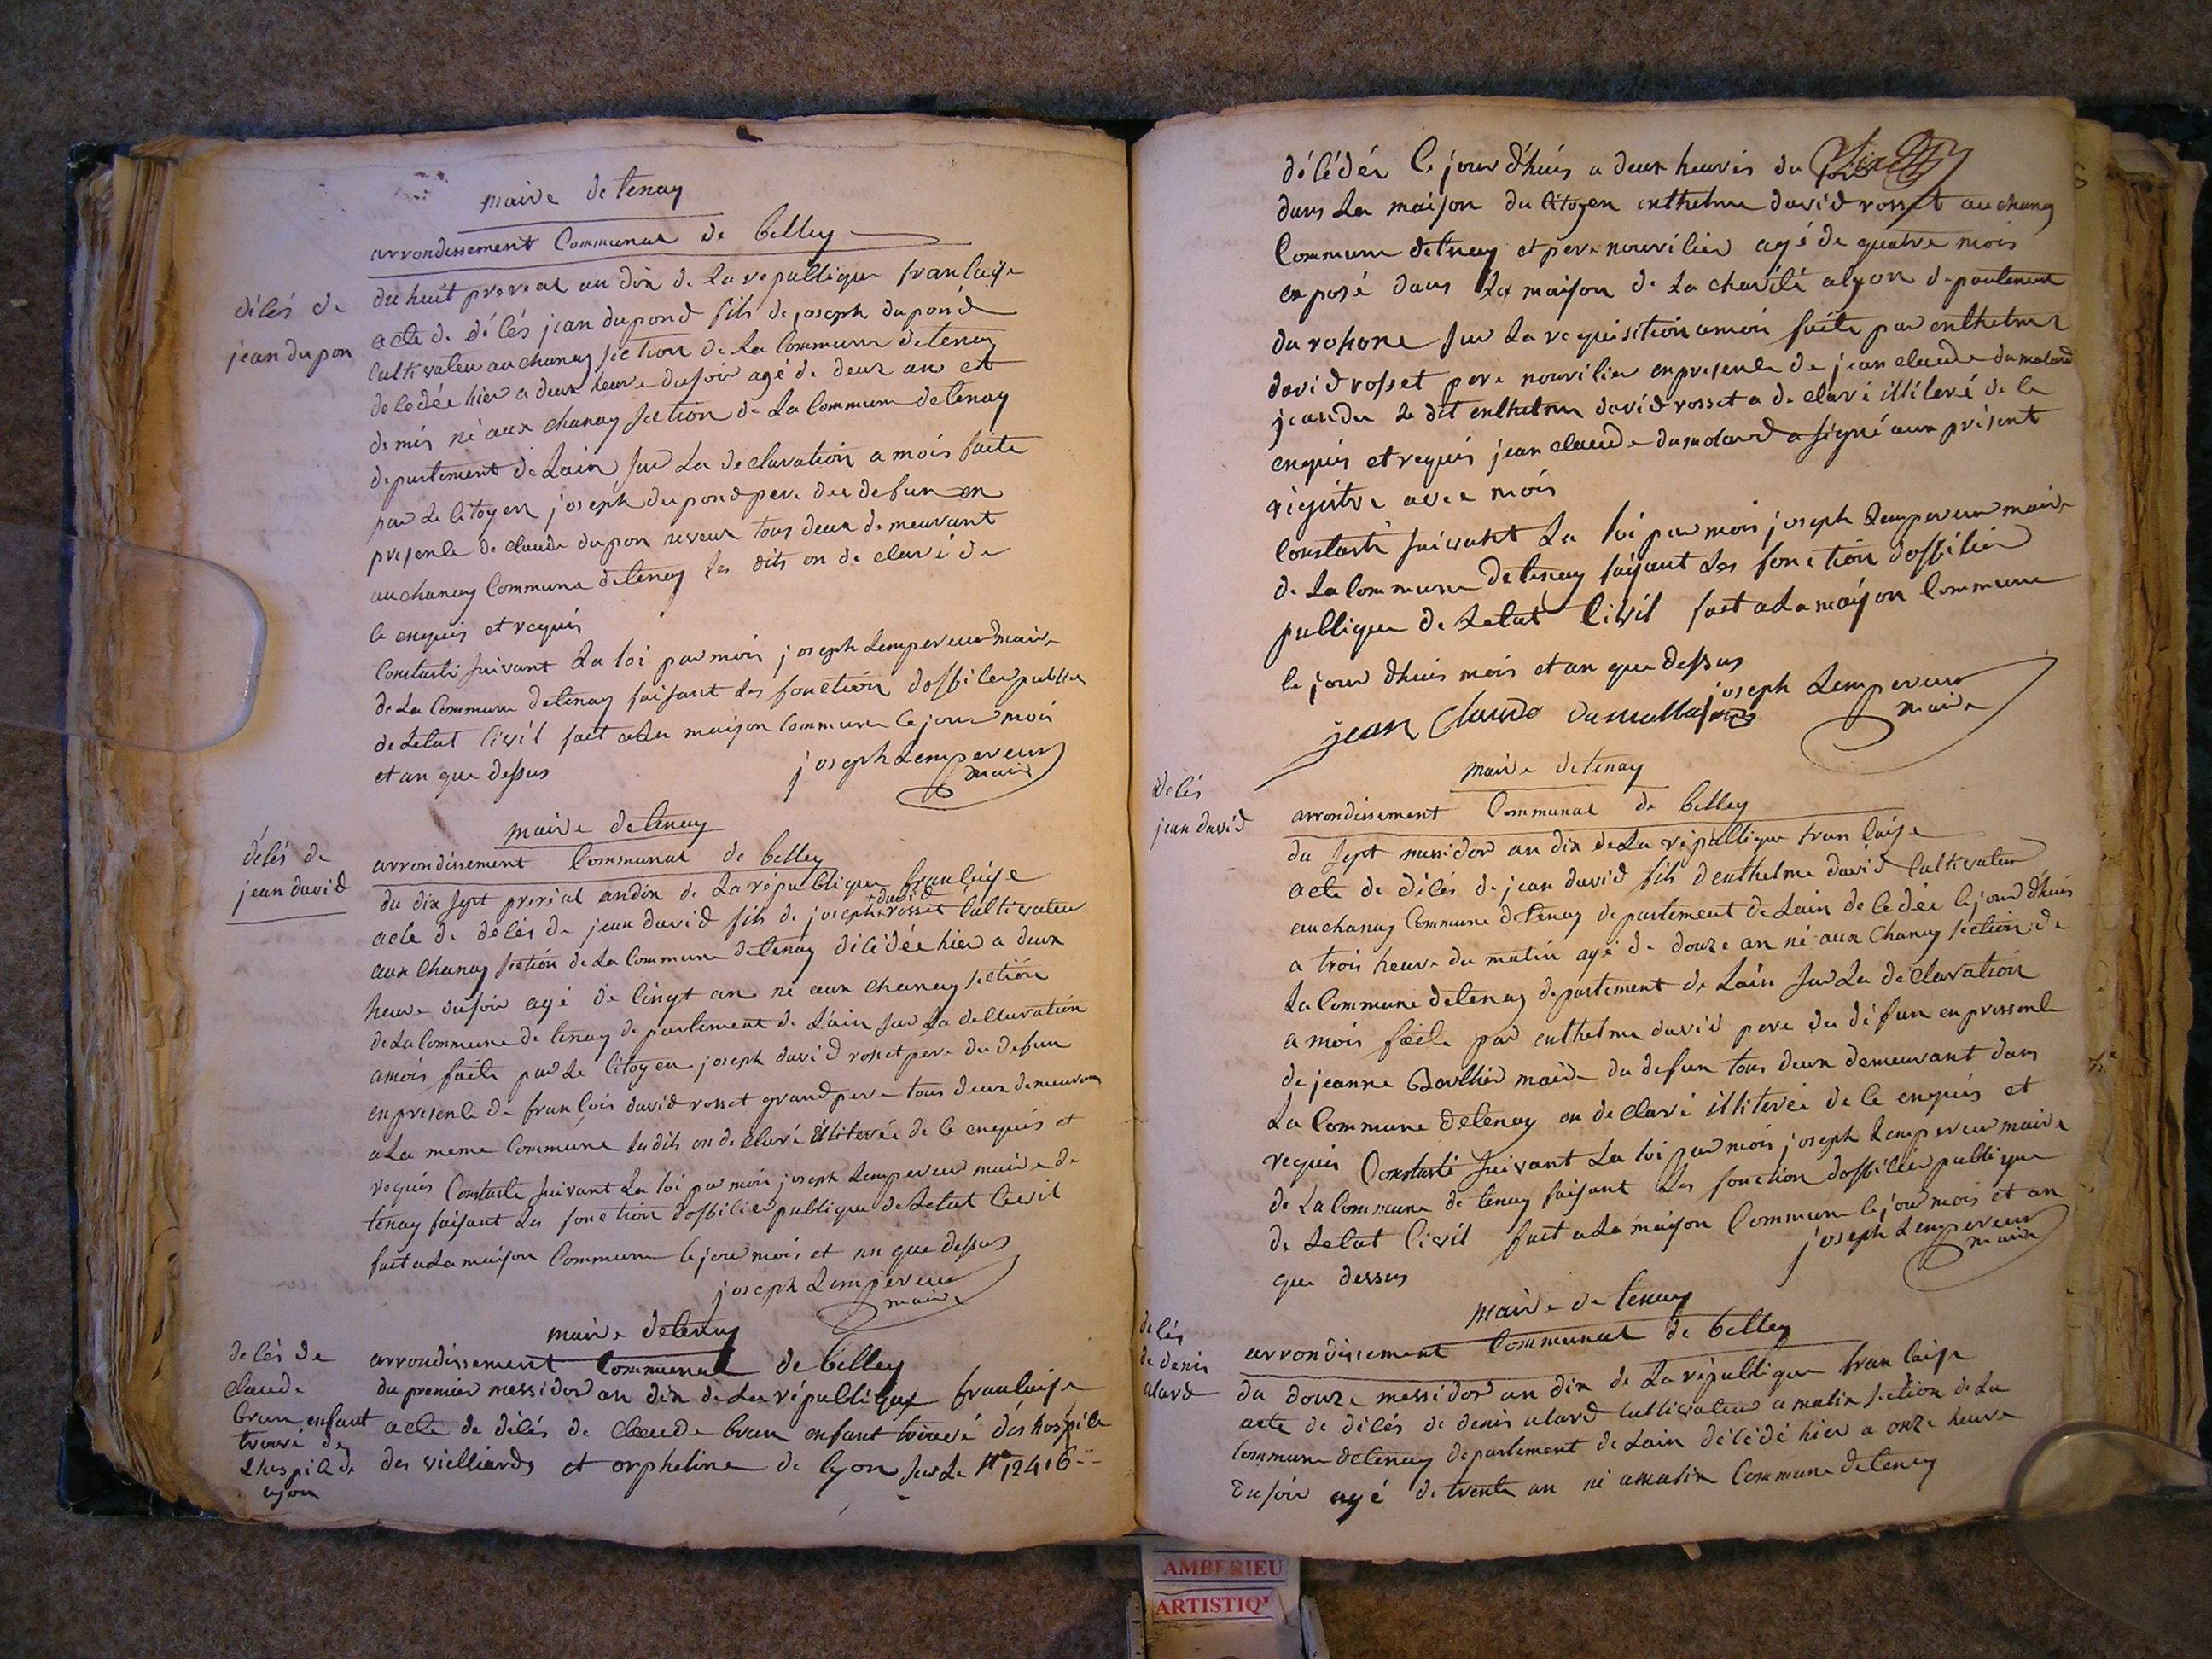 maire de tenay
arrondissement Communal de belley
délés de
jean dupon
du huit prereal an dix de La republique francaise
acte de délés jean dupond fils de joseph dupond
Cultivateu au chanay section de La Commune de tenay
decedée hier a deux heure du soir agé de deux an et
demis né aux chanay section de La Commune de tenay
departement de Lain sur La declaration a mois faite
par Le Citoyen joseph dupond pere du defun en
presence de claude dupon neveux tous deux demeurant
au chanay Commune de tenay les dits on de claré de
ce enquis et requis
Constasté suivant La loi par mois joseph Lempereur maire
de La Commune de tenay faisant Les fonction dofficier public
de Letat Civil fait a La maison Commune le jour mois
et an que dessus
joseph Lempereur
maire
maire de tenay
délés de
jean david
arrondissement Communal de belley
du dix sept prerial an dix de La république francaise
acte de délés de jean david fils de joseph david rosset Cultivateu
aux Chanay section de La Commune de tenay décédée hier a deux
heure du soir agé de Cingt an né aux chanay section
de La Commune de tenay departement de L'ain sur La declaration
a mois faite par Le Citoyen joseph david rosset pére du defun
en presence de francois david rosset grand pere tous deux demeurant
a La meme Commune Les dits on de claré illiterée de ce enquis et
requis Constasté suivant La loi par mois joseph Lempereur maire de
tenay faisant Les fonction d'officier publique de Letat Civil
fait a La maison Commune le jour mois et an que dessus
joseph Lempereur
maire
maire de tenay
delés de
claude
brun enfant
trouvé de
Lhospice de
lyon
arrondissement Communal de belley
du premier messidor an dix de La république francaise
acte de délés de claude brun enfant trouvé dés hospice
des vielliards et orpheline de lyon sur Le N° 12416
décédér le jour d'huis a deux heures du
dans La maison du Citoyen enthelme david rosset au chanay
Commune de tenay et pere nourricier agé de quatre mois
exposé dans La maison de La charité a lyon departement
du rohone sur La requisition a moi faite par enthelme
david rosset pere nourricier en presence de jean claude dumolard
jeandu Le dit enthelme david rosset a de claré illiteré de ce
enquis et requis jean claude dumolard a signé aux présent
régistre avec mois
Constasté suivant La loi par mois joseph Lempereur maire
de La Commune de tenay faisant Les fonction dofficier
publique de Letat Civil fait a La maison Commune
le jour dhuis mois et an que dessus
joseph Lempereur
maire
jean Claude dumollard
maire de tenay
Délés
jean david
arrondissement Communal de belley
du sept messidor an dix de La république francaise
acte de délés de jean david fils denthelme david Cultivateur
au chanay Commune de tenay departement de Lain decedée le jour d'huis
a trois heure du matin agé de douze an né aux Chanay section de
La Commune de tenay departement de Lain sur La declaration
a mois faite par enthelme david pere du défun en pressence
de jeanne Barllier maire du defun tous deux demeurant dans
La Commune de tenay on de claré illiterée de ce enquis et
requis Constasté suivant La loi par mois joseph Lempereur maire
de La Commune de tenay faisant Les fonction dofficier publique
de Letat Civil fait a La maison Commune le jour mois et an
que dessus
joseph Lempereur
maire
maire de tenay
delés
de denis
alard
arrondissement Communal de belley
du douze messidor an dix de La république francaise
acte de délés de denis alard Cultivateu a malix section de La
Commune de tenay departement de Lain décédé hier a onze heure
du soir agé de trente an né a malix Commune de tenay
AMBERIEU
ARTISTIQ